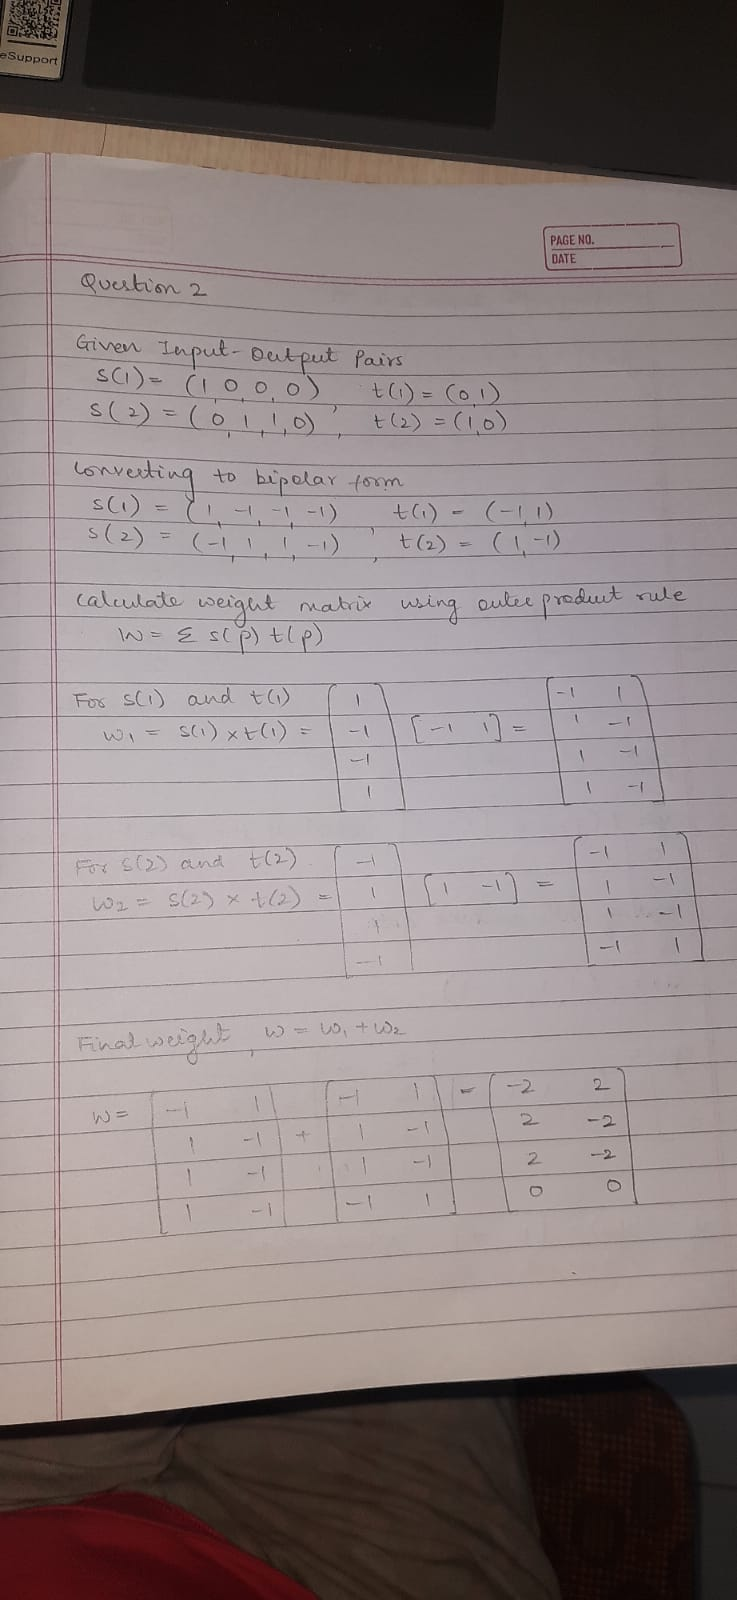 eSupport
PAGE NO.
DATE
Question 2
Given Input-Output Pairs
S(1) = (1, 0, 0, 0) t(1) = (0,1)
S(2) = (0, 1, 1, 0), t(2) = (1,0)
Converting to bipolar form
S(1) = (1, -1, -1, -1) t(1) = (-1,1)
S(2) = (-1, 1, 1, -1), t(2) = (1,-1)
Calculate weight matrix using outer product rule
W = Σ s(p) t(p)
For S(1) and t(1)
W₁ = S(1) × t(1) = [1 -1 -1 1] [-1 1] = [-1 1
1 -1
1 -1
1 -1]
For S(2) and t(2)
W₂ = S(2) × t(2) = [-1 1 1 -1] [1 -1] = [-1 1
1 -1
1 -1
-1 1]
Final weight, W = W₁ + W₂
W = [-1 1 + [-1 1 = [-2 2
1 -1 1 -1 2 -2
1 -1 1 -1 2 -2
1 -1] -1 1] 0 0]